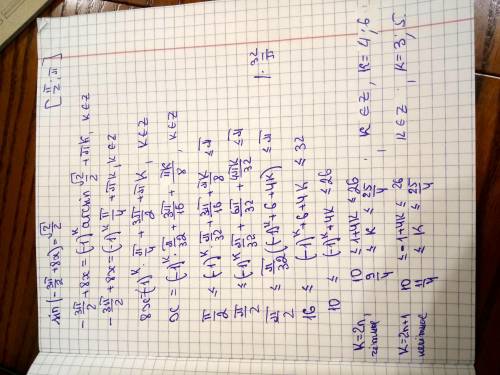 sin(-3π/2 + 8x) = √2/2 [π/2; π]
-3π/2 + 8x = (-1)^K arcsin √2/2 + πK, K∈Z
-3π/2 + 8x = (-1)^K π/4 + πK, K∈Z
8x = (-1)^K · π/4 + 3π/2 + πK, K∈Z
x = (-1)^K · π/32 + 3π/16 + πK/8, K∈Z
π/2 ≤ (-1)^K π/32 + 3π/16 + πK/8 ≤ π
π/2 ≤ (-1)^K π/32 + 6π/32 + 4πK/32 ≤ π
π/2 ≤ π/32 ((-1)^K + 6 + 4K) ≤ π | · 32/π
16 ≤ (-1)^K + 6 + 4K ≤ 32
10 ≤ (-1)^K + 4K ≤ 26
K=2n, 10 ≤ 1+4K ≤ 26
чётные 9/4 ≤ K ≤ 25/4, K∈Z, K=4;6
K=2n+1 10 ≤ -1+4K ≤ 26
нечётные 11/4 ≤ K ≤ 25/4, K∈Z, K=3;5